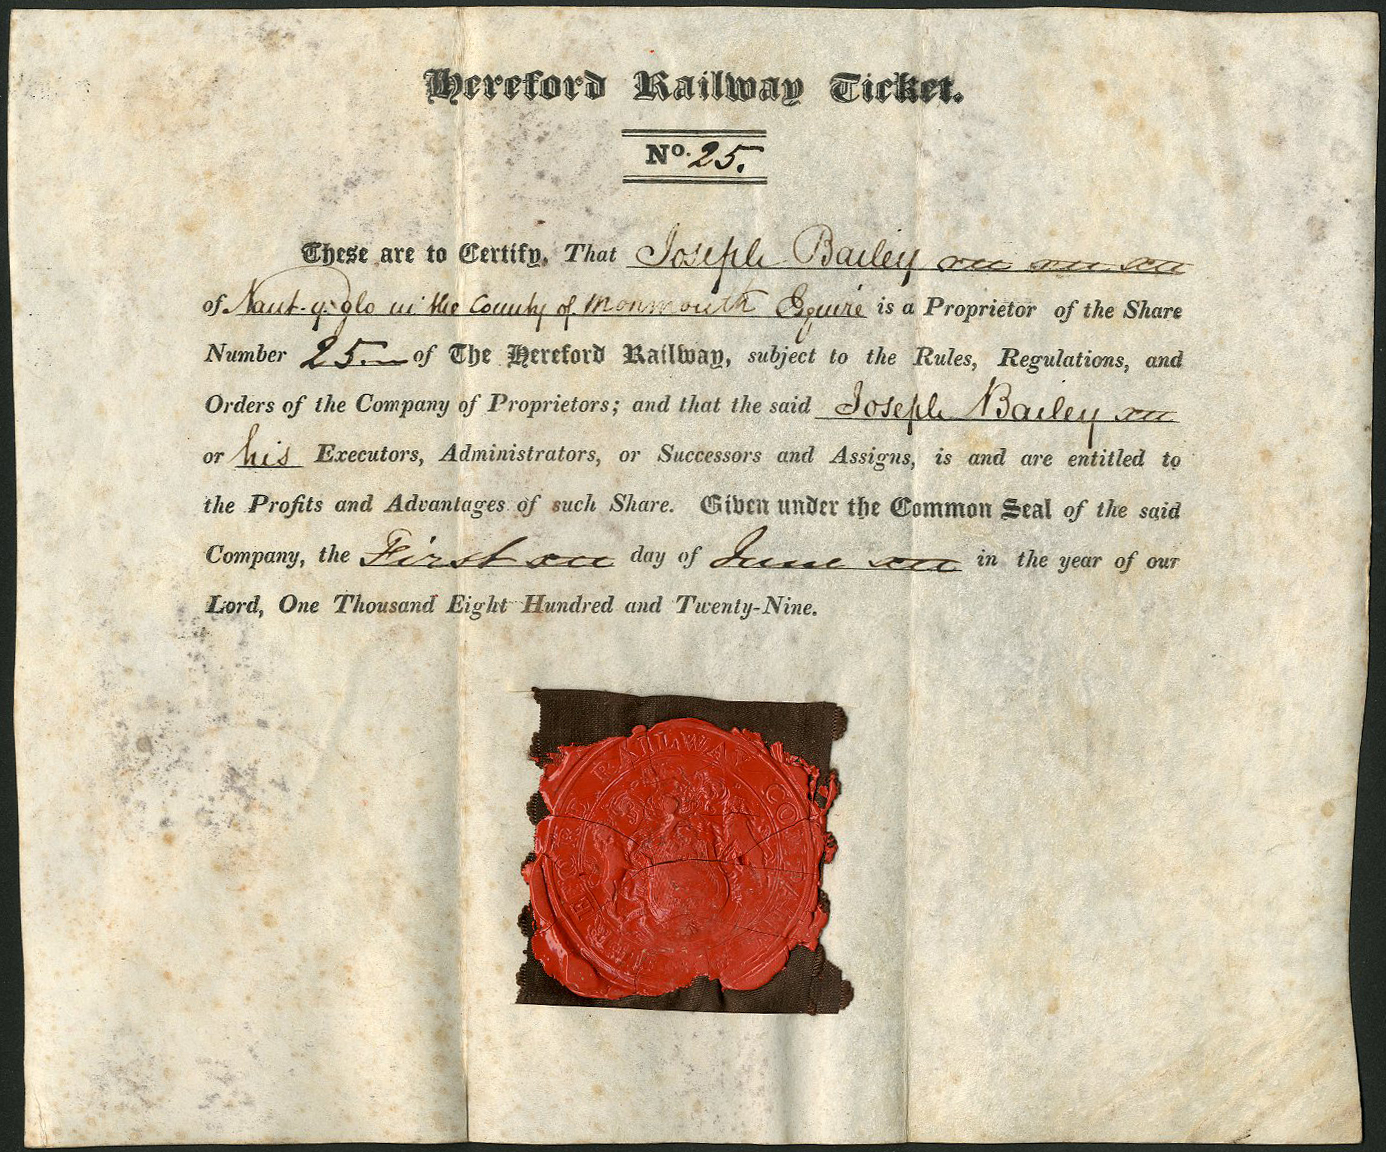 Hereford Railway Ticket.
No. 25.
These are to Certify, That Joseph Bailey
of Nant-y-glo in the County of Monmouth Esquire is a Proprietor of the Share
Number 25 of The Hereford Railway, subject to the Rules, Regulations, and
Orders of the Company of Proprietors; and that the said Joseph Bailey
or his Executors, Administrators, or Successors and Assigns, is and are entitled to
the Profits and Advantages of such Share. Given under the Common Seal of the said
Company, the First day of June in the year of our
Lord, One Thousand Eight Hundred and Twenty-Nine.
RAILWAY